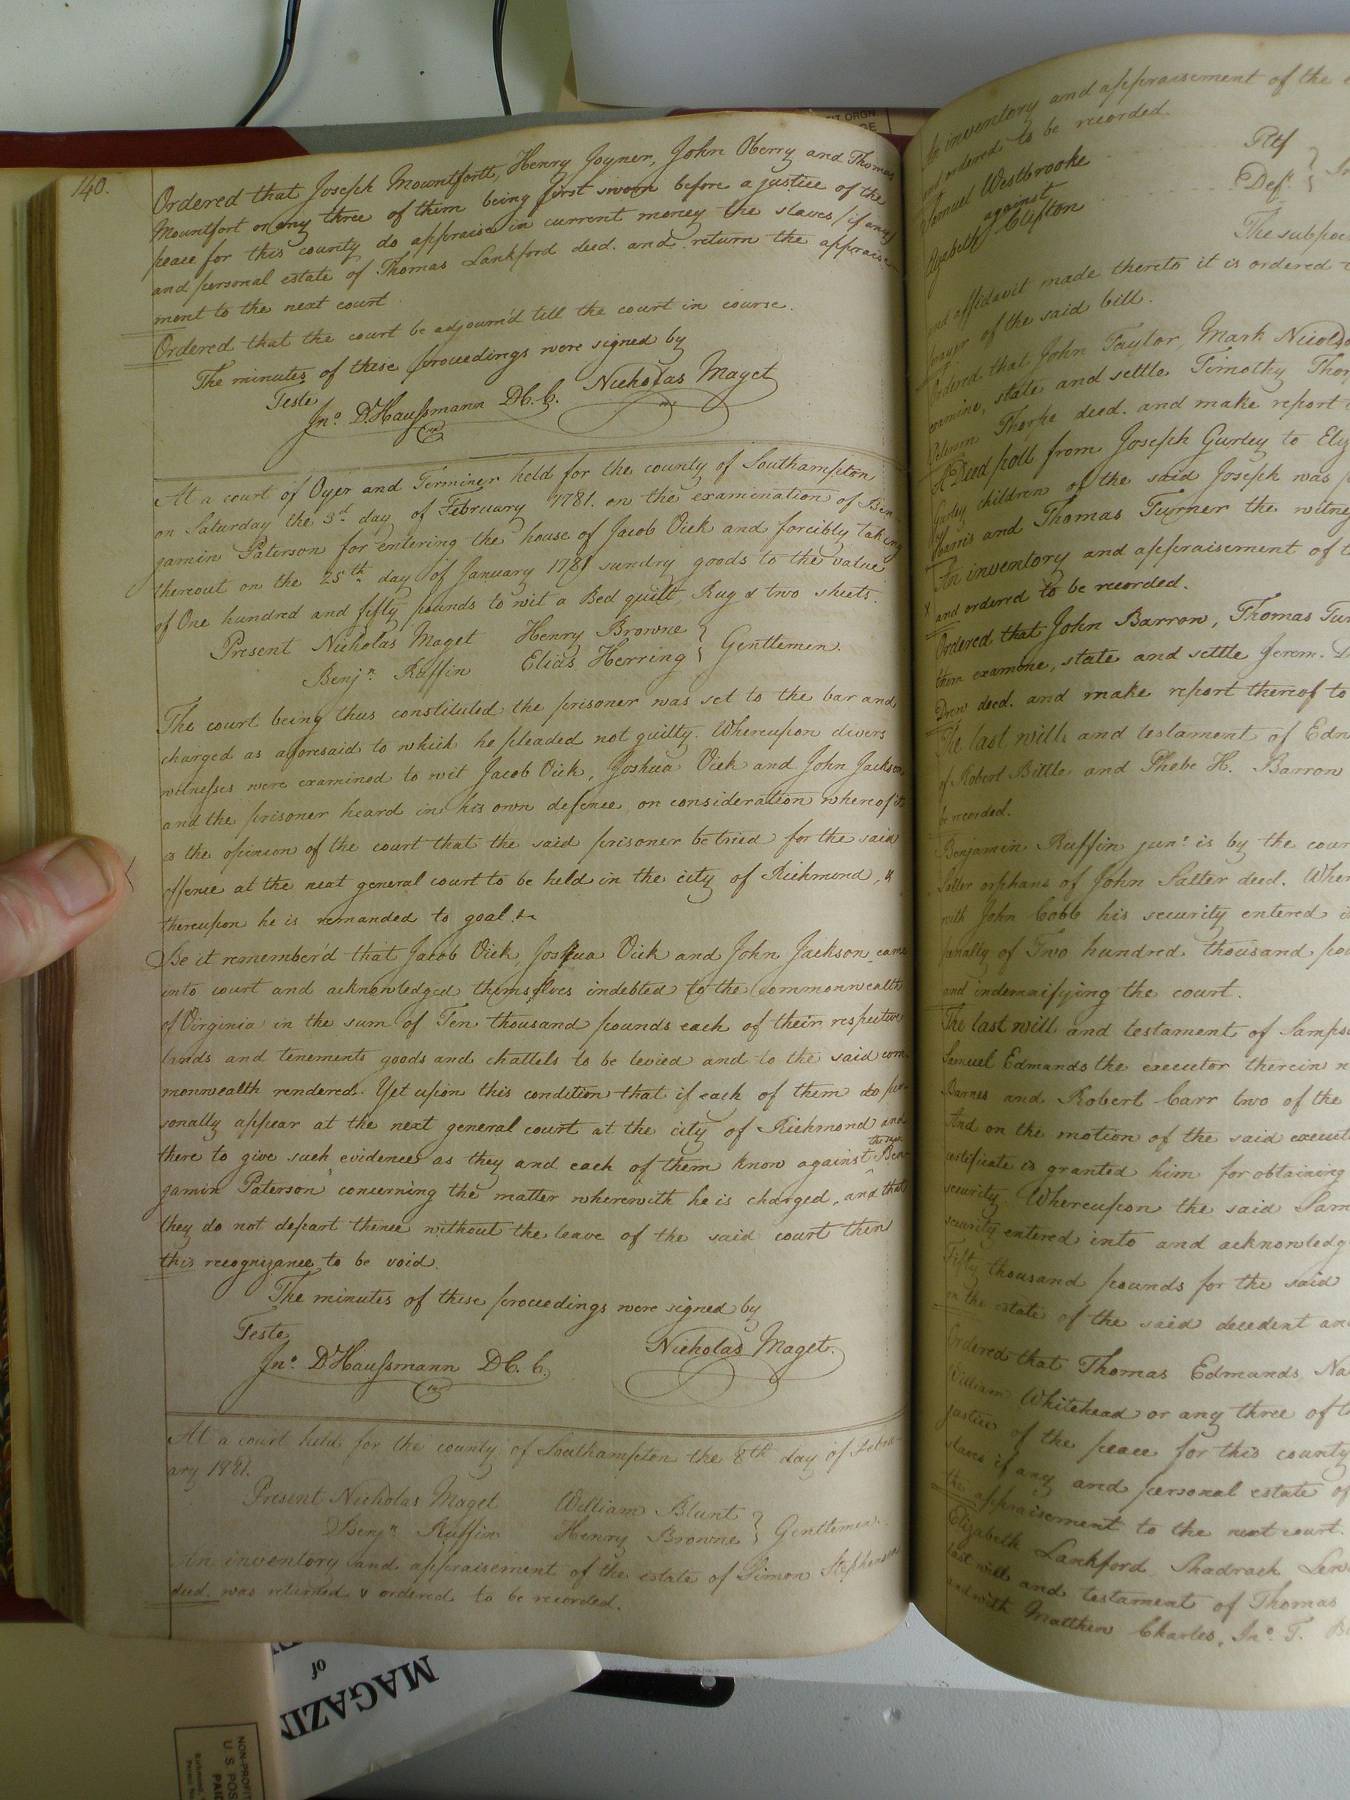 140.
Ordered that Joseph Mountfortt, Henry Joyner, John Oberry and Thomas
Mountfort or any three of them being first sworn before a justice of the
peace for this county do appraise in current money the slaves /if any/
and personal estate of Thomas Lankford deed. and return the appraise-
ment to the next court
Ordered that the court be adjourn'd till the court in course.
The minutes of these proceedings were signed by
Teste Nicholas Maget
Jno. D'Haussmann DC.C.
At a court of Oyer and Terminer held for the county of Southampton
on Saturday the 3d. day of February 1781. on the examination of Ben-
jamin Paterson for entering the house of Jacob Vick and forcibly taking
thereout on the 25th day of January 1781 sundry goods to the value
of One hundred and fifty pounds to wit a Bed quilt Rug & two sheets.
Present Nicholas Maget Henry Browne } Gentlemen.
Benjn. Ruffin Elias Herring
The court being thus constituted the prisoner was set to the bar and
charged as aforesaid to which he pleaded not guilty. Whereupon divers
witnesses were examined to wit Jacob Vick, Joshua Vick and John Jackson
and the prisoner heard in his own defence on consideration whereof it
is the opinion of the court that the said prisoner be tried for the said
offense at the next general court to be held in the city of Richmond, &
thereupon he is remanded to goal.
Be it remember'd that Jacob Vick Joshua Vick and John Jackson came
into court and acknowledged themselves indebted to the commonwealth
of Virginia in the sum of Ten thousand pounds each of their respective
lands and tenements goods and chattels to be levied and to the said com-
monwealth rendered. Yet upon this condition that if each of them do per-
sonally appear at the next general court at the city of Richmond and
there to give such evidence as they and each of them know against the said Ben-
jamin Paterson concerning the matter wherewith he is charged, and that
they do not depart thence without the leave of the said court then
this recognizance to be void.
The minutes of these proceedings were signed by
Teste
Jno. D'Haussmann DC.C. Nicholas Maget.
At a court held for the county of Southampton the 8th day of Febru-
ary 1781.
Present Nicholas Maget William Blunt } Gentlemen.
Benjn Ruffin Henry Browne
An inventory and appraisement of the estate of Simon Stephenson
deed. was returned & ordered to be recorded.
An inventory and appraisement of the
and ordered to be recorded.
Samuel Westbrooke Pltf
against
Clifton Deft.
The subpoe
and affidavit made thereto it is ordered
prayer of the said bill.
Ordered that John Taylor, Mark Nicolso
examine, state and settle Timothy Thor
Thorpe deed. and make report
A Deed poll from Joseph Gurley to Eliz
Gurley children of the said Joseph was
Harris and Thomas Turner the witnes
An inventory and appraisement of t
x and ordered to be recorded.
Ordered that John Barrow, Thomas Tur
them examine, state and settle Jerem.
Drew deed. and make report thereof to
The last will and testament of Edm
of Robert Bittle and Phebe H. Barrow
be recorded.
Benjamin Ruffin junr. is by the cour
Salter orphans of John Salter deed. Wher
with John Cobb his security entered i
penalty of Two hundred thousand po
and indemnifying the court.
The last will and testament of Samps
Samuel Edmands the executor therein n
Barnes and Robert Carr two of the
And on the motion of the said execut
certificate is granted him for obtaining
security. Whereupon the said Sam
security entered into and acknowledg
Fifty thousand pounds for the said
on the estate of the said decedent an
Ordered that Thomas Edmands Na
William Whitehead or any three of t
justice of the peace for this county
slaves if any and personal estate of
the appraisement to the next court.
Elizabeth Lankford Shadrach Lew
last will and testament of Thomas
and with Matthew Charles, Jno. T.
MAGAZIN
of
NON-PROFIT
U.S. POS
PAI